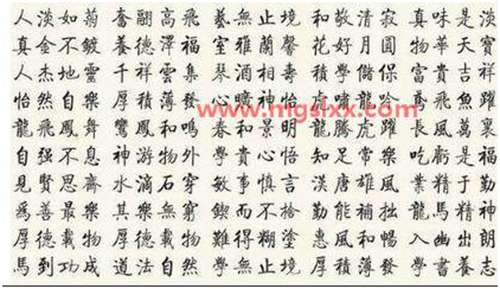 人淡如菊 奮翮高飛 藝無止境 和敬清寂 真味是淡
真金不鍍 養德澤福 室雅蘭馨 花好月圓 物華天寶
人杰地靈 千祥雲集 琴酒相壽 積學儲保 富貴吉祥
怡然自樂 厚積薄發 心曠神怡 虎嘯龍吟 鳶飛魚躍
龍飛鳳舞 鸞鳳和鳴 春和景明 龍騰虎躍 長風萬裏
自强不息 神游物外 學貴心悟 知足常樂 吃虧是福
見賢思齋 水滴石穿 敏事慎言 漢唐雄風 業精于勤
為善最樂 其樂無窮 鍥而不捨 勤能補拙 龍馬精神
厚德載物 厚德載物 難得糊塗 惠風和暢 入幽出朗
馬到功成 道法自然 學無止境 厚積薄發 學書養志
www.mgslxx.com